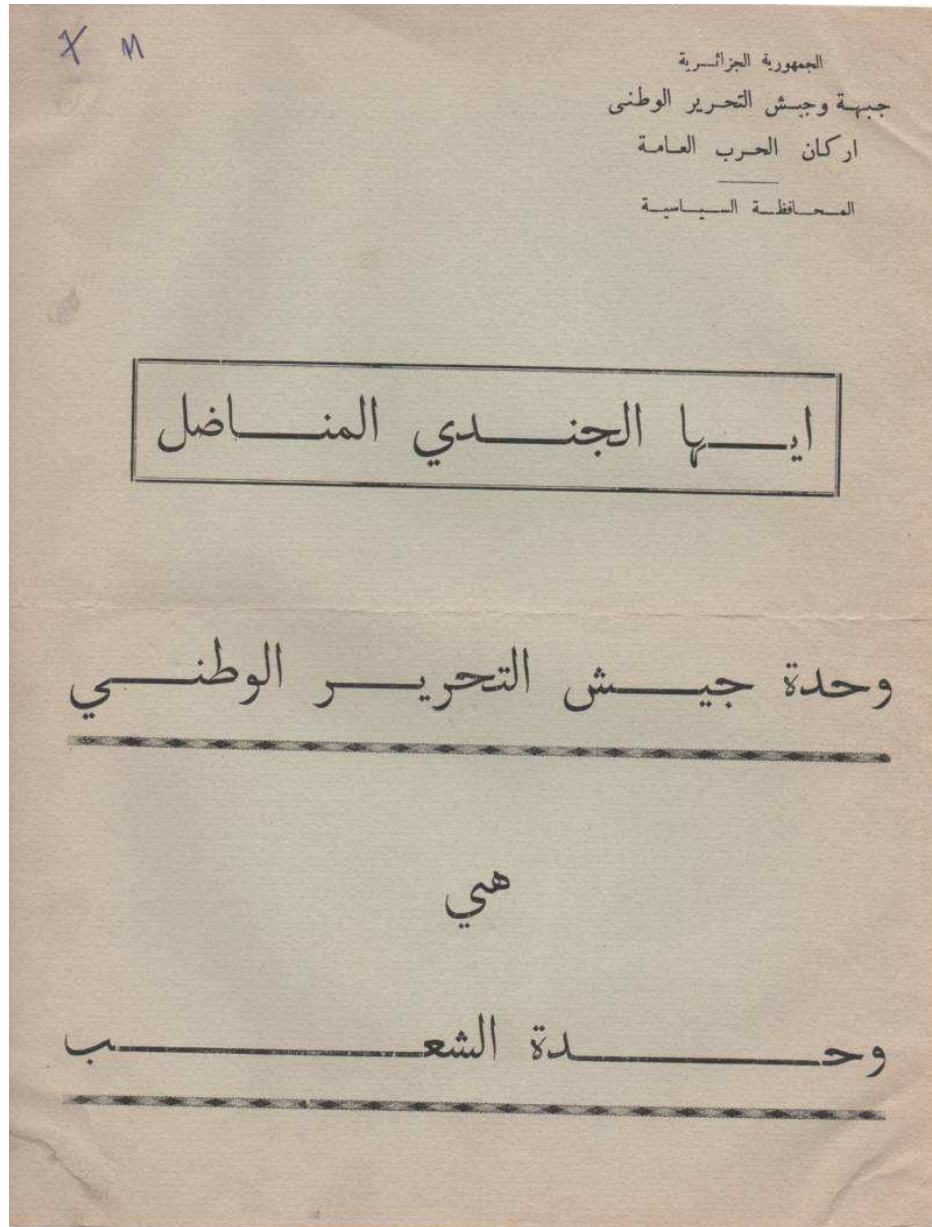 الجمهورية الجزائرية
جبهة وجيش التحرير الوطنى
اركان الحرب العامة
المحافظة السياسية
ايها الجندي المناضل
وحدة جيش التحرير الوطني
هي
وحدة الشعب